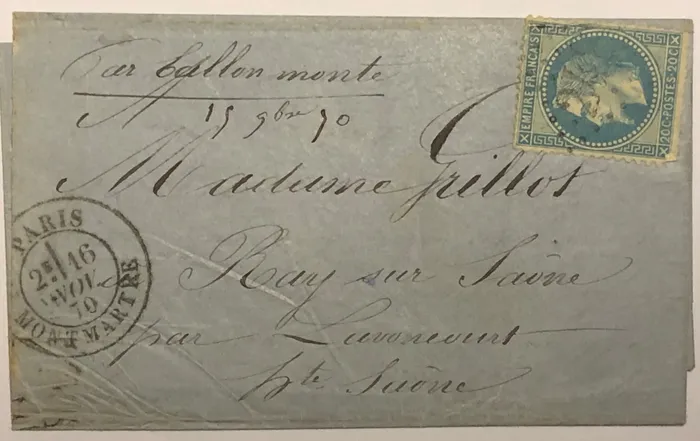 Par Ballon monté
15 9bre 70
Madame Grillot
Ray sur Saône
par Lavoncourt
hte Saône
EMPIRE FRANÇAIS
20C·POSTES·20C
PARIS
2E 16
NOV
70
MONTMARTRE